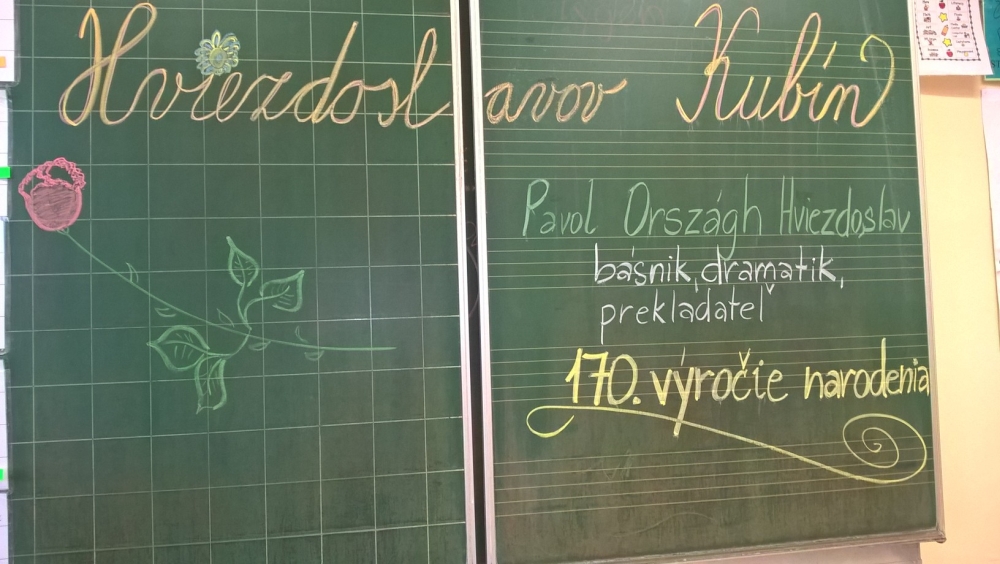 Hviezdoslavov Kubín
Pavol Országh Hviezdoslav
básnik, dramatik,
prekladateľ
170. výročie narodenia